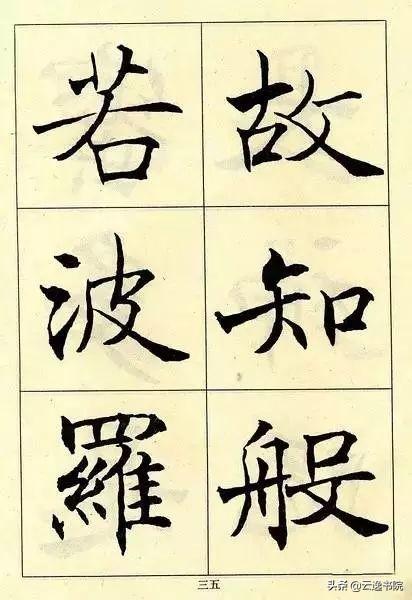 故知般
若波羅
三五
头条 @云逸书院